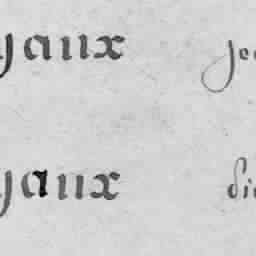 yaux je
yaux di